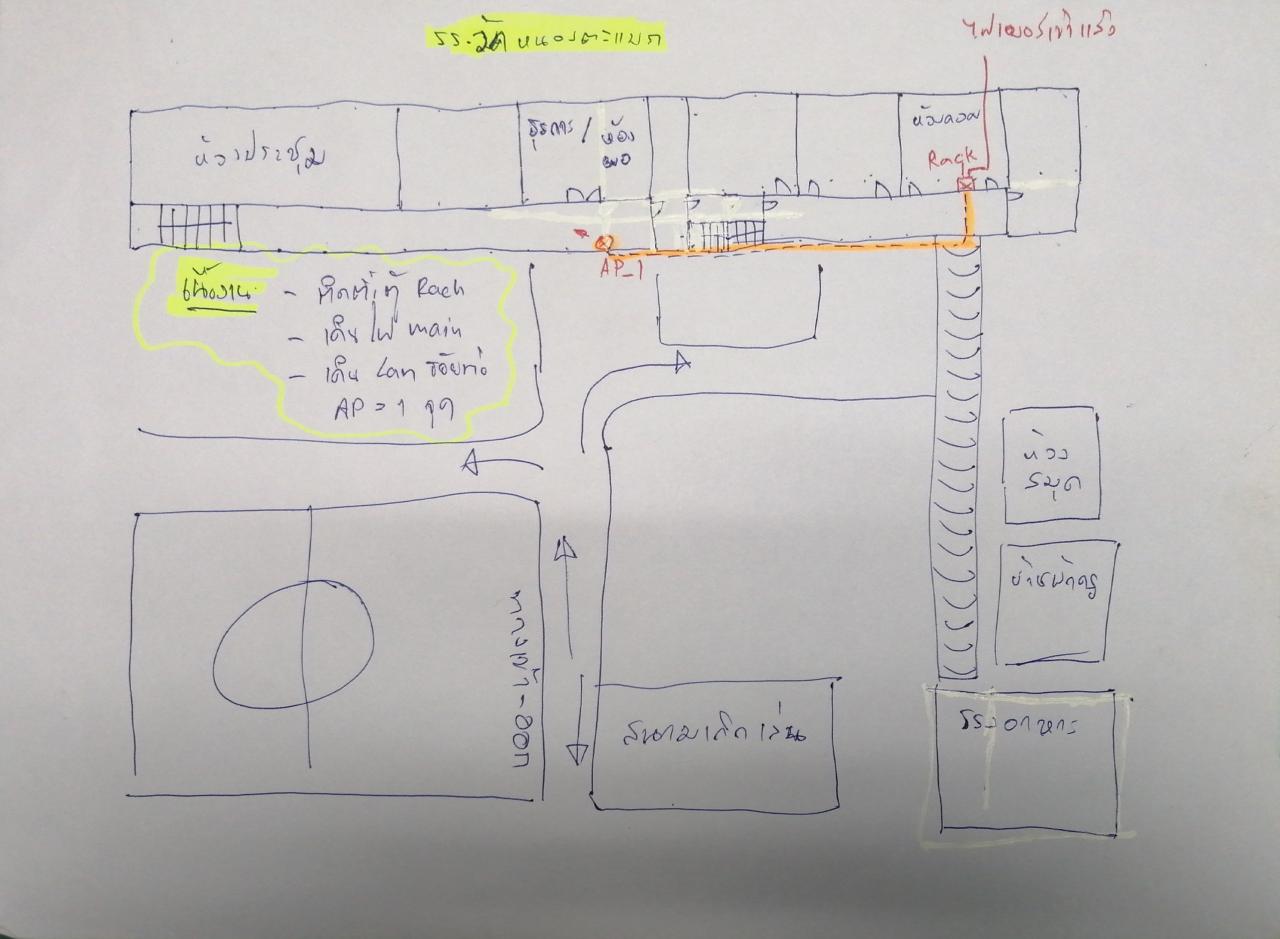 รร.วัดหนองตะแบก
ไฟเบอร์เข้าแล้ว
ห้องประชุม
ธุรการ / ห้อง
ผอ
ห้องคอม
Rack
AP_1
เนื้องาน - ติดตั้งตู้ Rack
- เดินไฟ main
- เดิน Lan ร้อยท่อ
AP = 1 จุด
ห้อง
สมุด
บ้านพักครู
ทางเข้า-ออก
สนามเด็กเล่น
โรงอาหาร